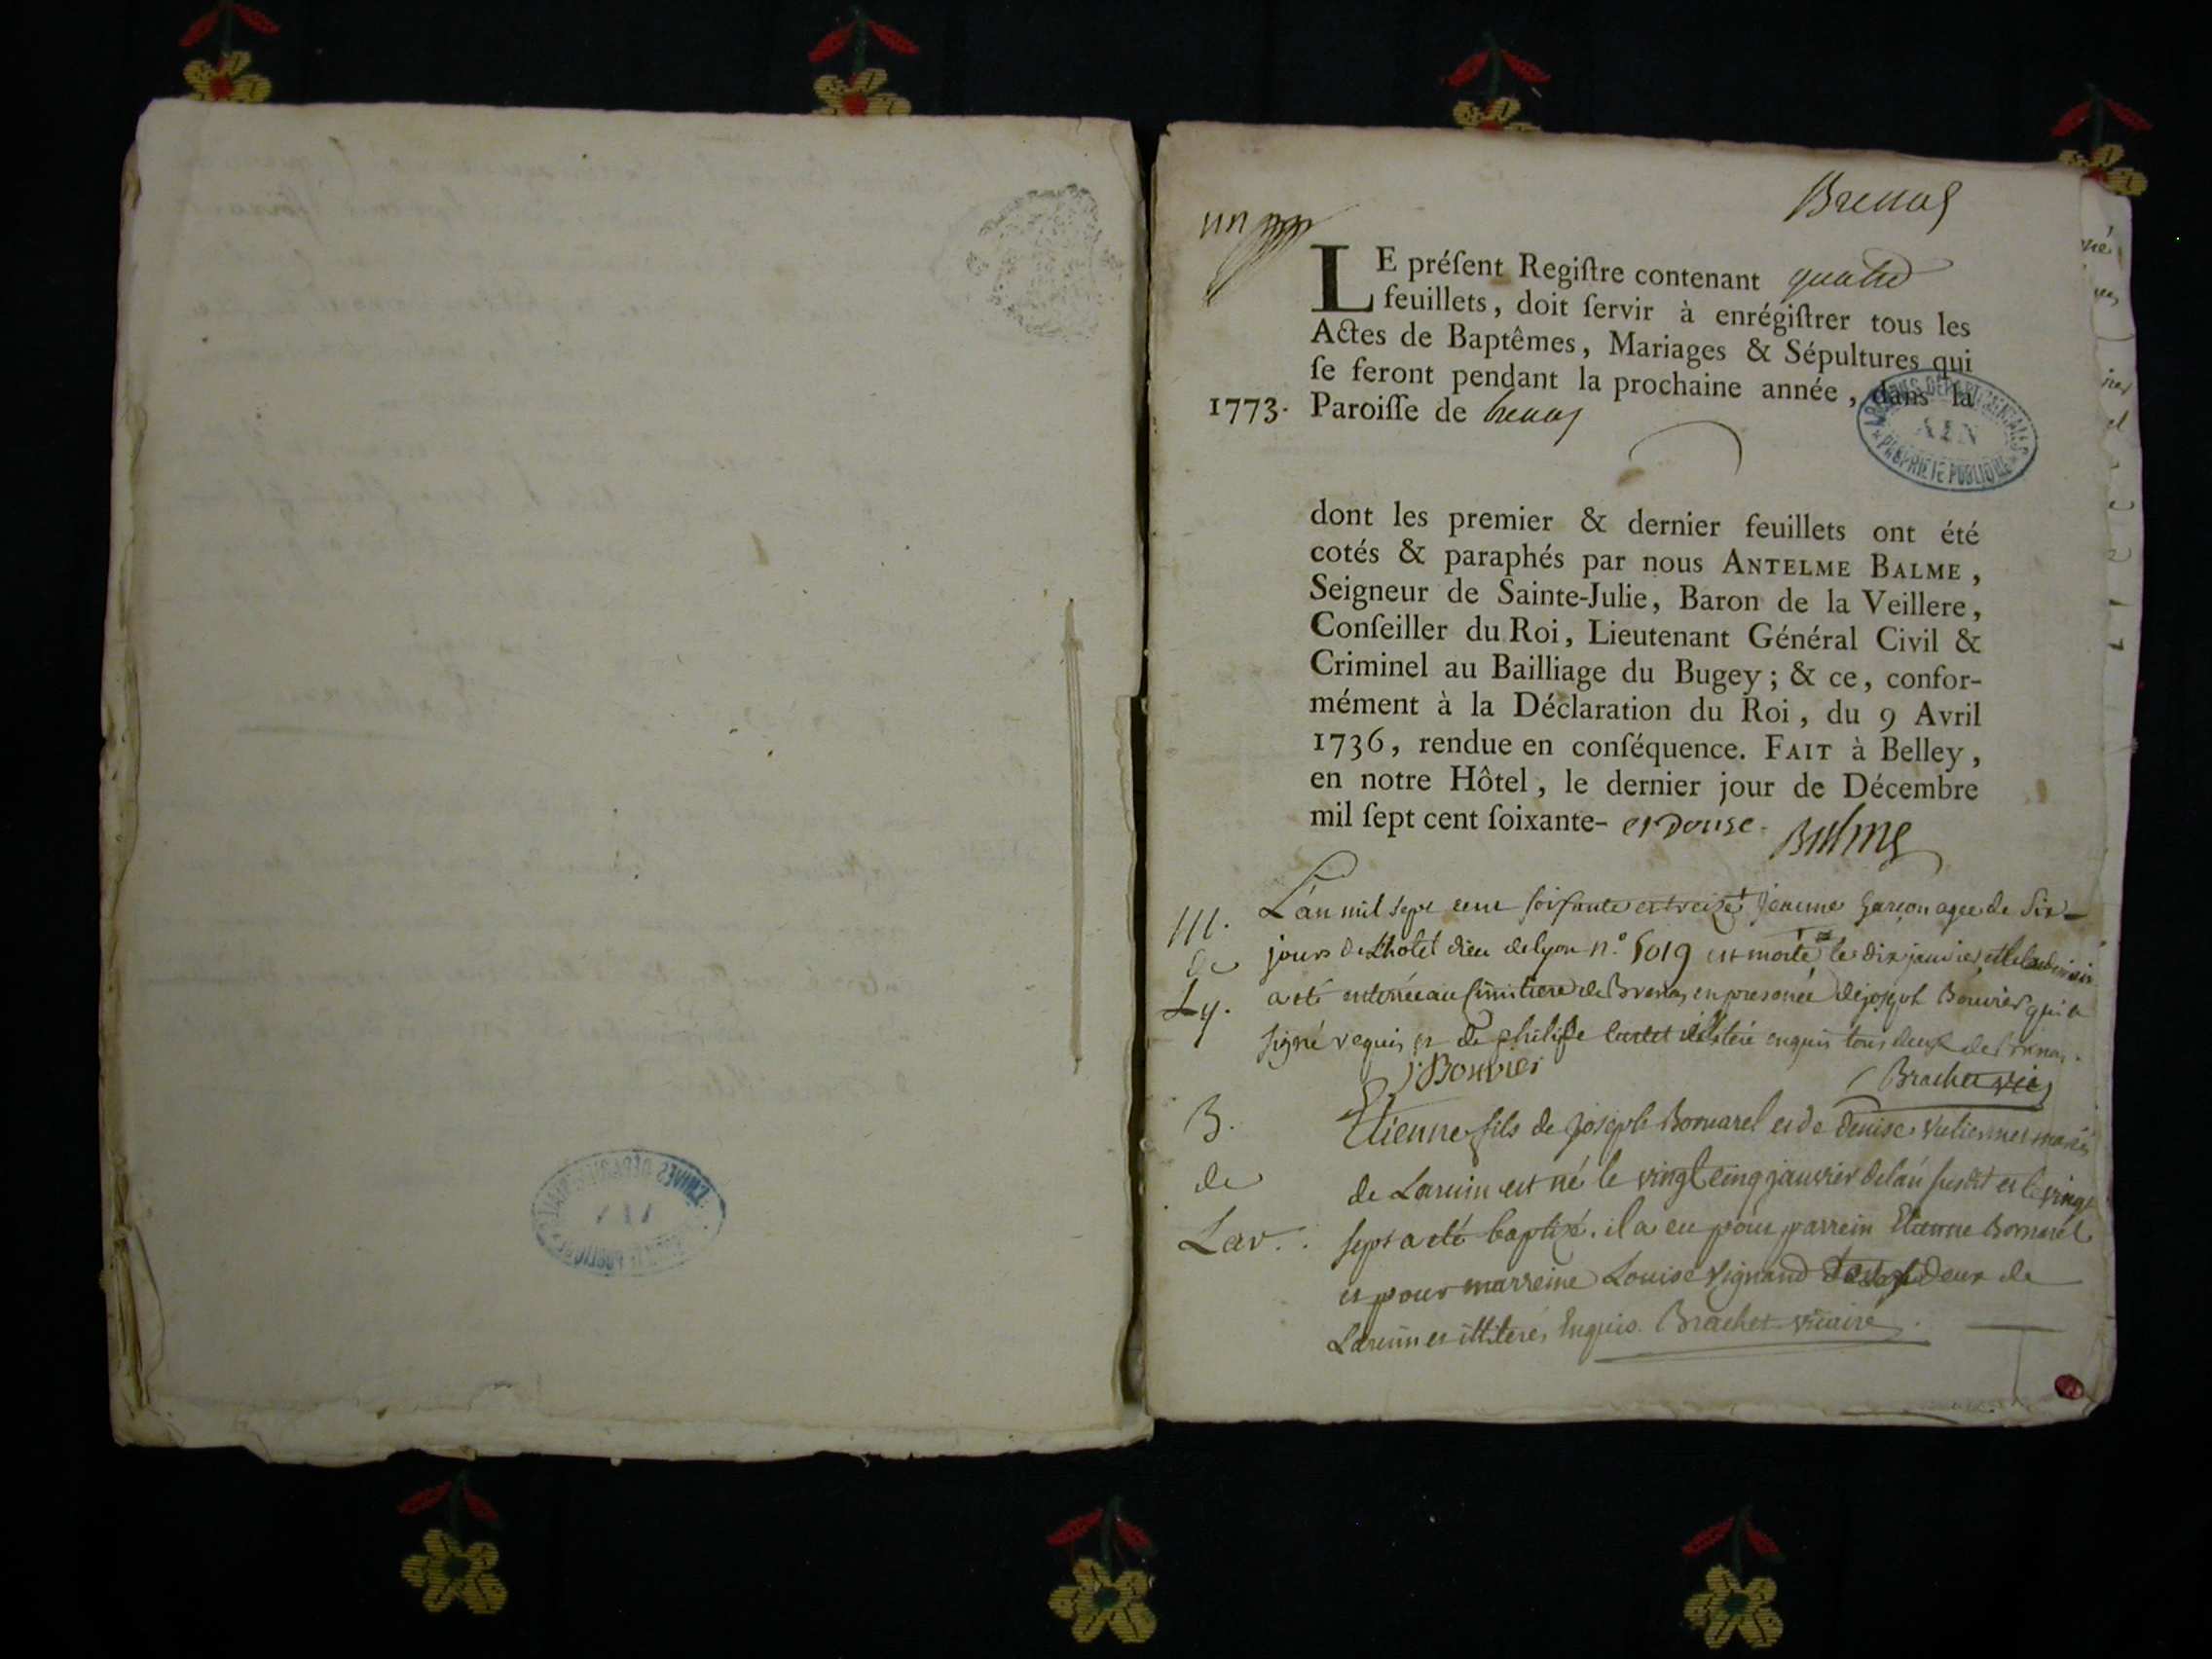 Brenas
un
LE préſent Regiſtre contenant quatre
feuillets, doit ſervir à enrégiſtrer tous les
Actes de Baptêmes, Mariages & Sépultures qui
ſe feront pendant la prochaine année, dans la
1773. Paroiſſe de brenas
ARCHIVES DEPARTEMENTALES
AIN
PROPRIETE PUBLIQUE
dont les premier & dernier feuillets ont été
cotés & paraphés par nous ANTELME BALME,
Seigneur de Sainte-Julie, Baron de la Veillere,
Conſeiller du Roi, Lieutenant Général Civil &
Criminel au Bailliage du Bugey; & ce, confor-
mément à la Déclaration du Roi, du 9 Avril
1736, rendue en conſéquence. FAIT à Belley,
en notre Hôtel, le dernier jour de Décembre
mil ſept cent ſoixante- et Douze. Balme
L'an mil sept cent soixante et treize garçon agee de Six
jours de L'hotel dieu de lyon n.º 5019 est morte le dix janvier
a été enterrée au simitiere de Brenas en presence de joseph Bouvier qui a
signé requis et de philipe illiteré enquis tous deux de brenas.
J Bouvier
Brachet vic
B. Etienne fils de joseph Bornarel et de denise mariés
de de Laruin est né le vingt cinq janvier de l'an susdit et le vingt
Lav. sept a été baptizé. il a eu pour parrein Etienne Bornarel
et pour marreine Louise Vignand deux de
Laruin et illiterés Enquis. Brachet vicaire